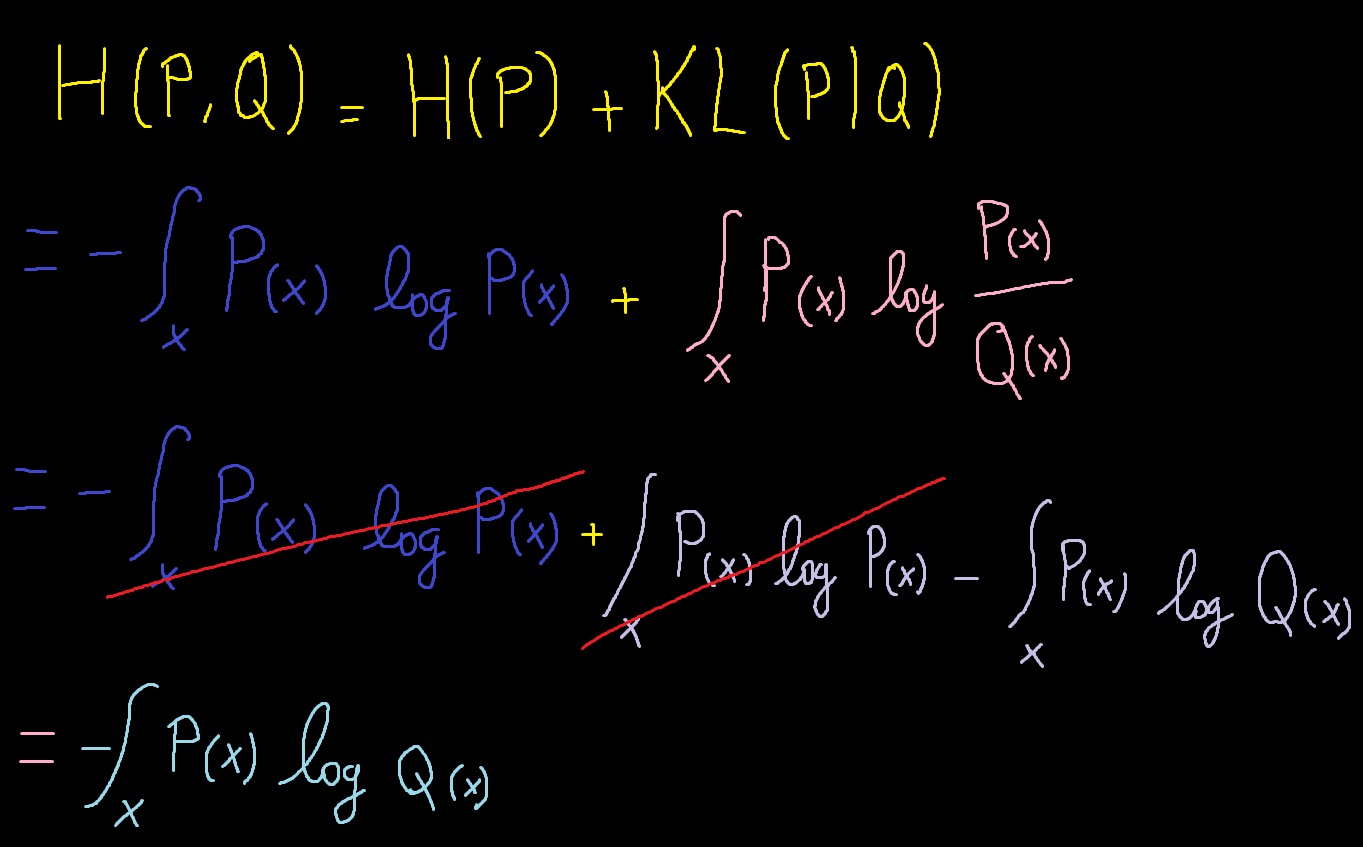 H(P,Q) = H(P) + KL(P|Q)
= - ∫ₓ P(x) log P(x) + ∫ₓ P(x) log P(x)/Q(x)
= - ∫ₓ P(x) log P(x) + ∫ₓ P(x) log P(x) - ∫ₓ P(x) log Q(x)
= - ∫ₓ P(x) log Q(x)